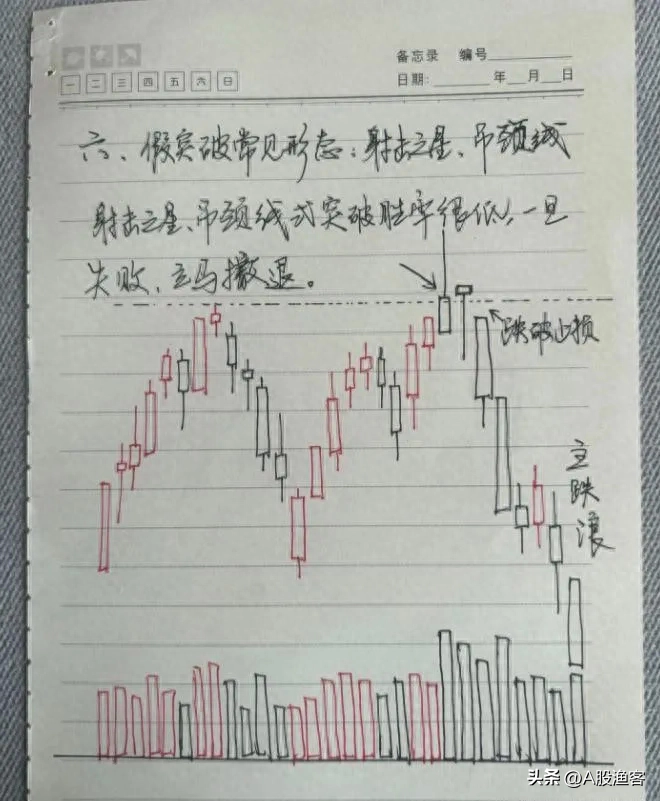 备忘录 编号
日期: 年 月 日
一 二 三 四 五 六 日
六、假突破常见形态：射击之星、吊颈线
射击之星、吊颈线式突破胜率很低，一旦
失败、立马撤退。
跌破止损
主跌浪
头条 @A股渔客